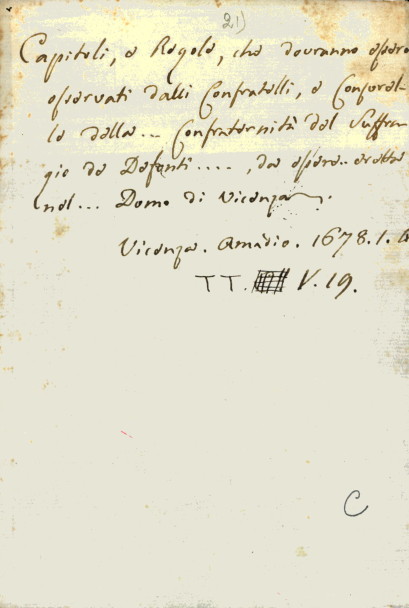 21)
Capitoli, e Regole, che dovranno essere
osservati dalli Confratelli, e Consorel-
le della... Confraternità del Suffra-
gio de Defonti...., da essere eretta
nel... Domo di Vicenza.
Vicenza. Amadio. 1678. 1. 4
TT. V. 19.
C